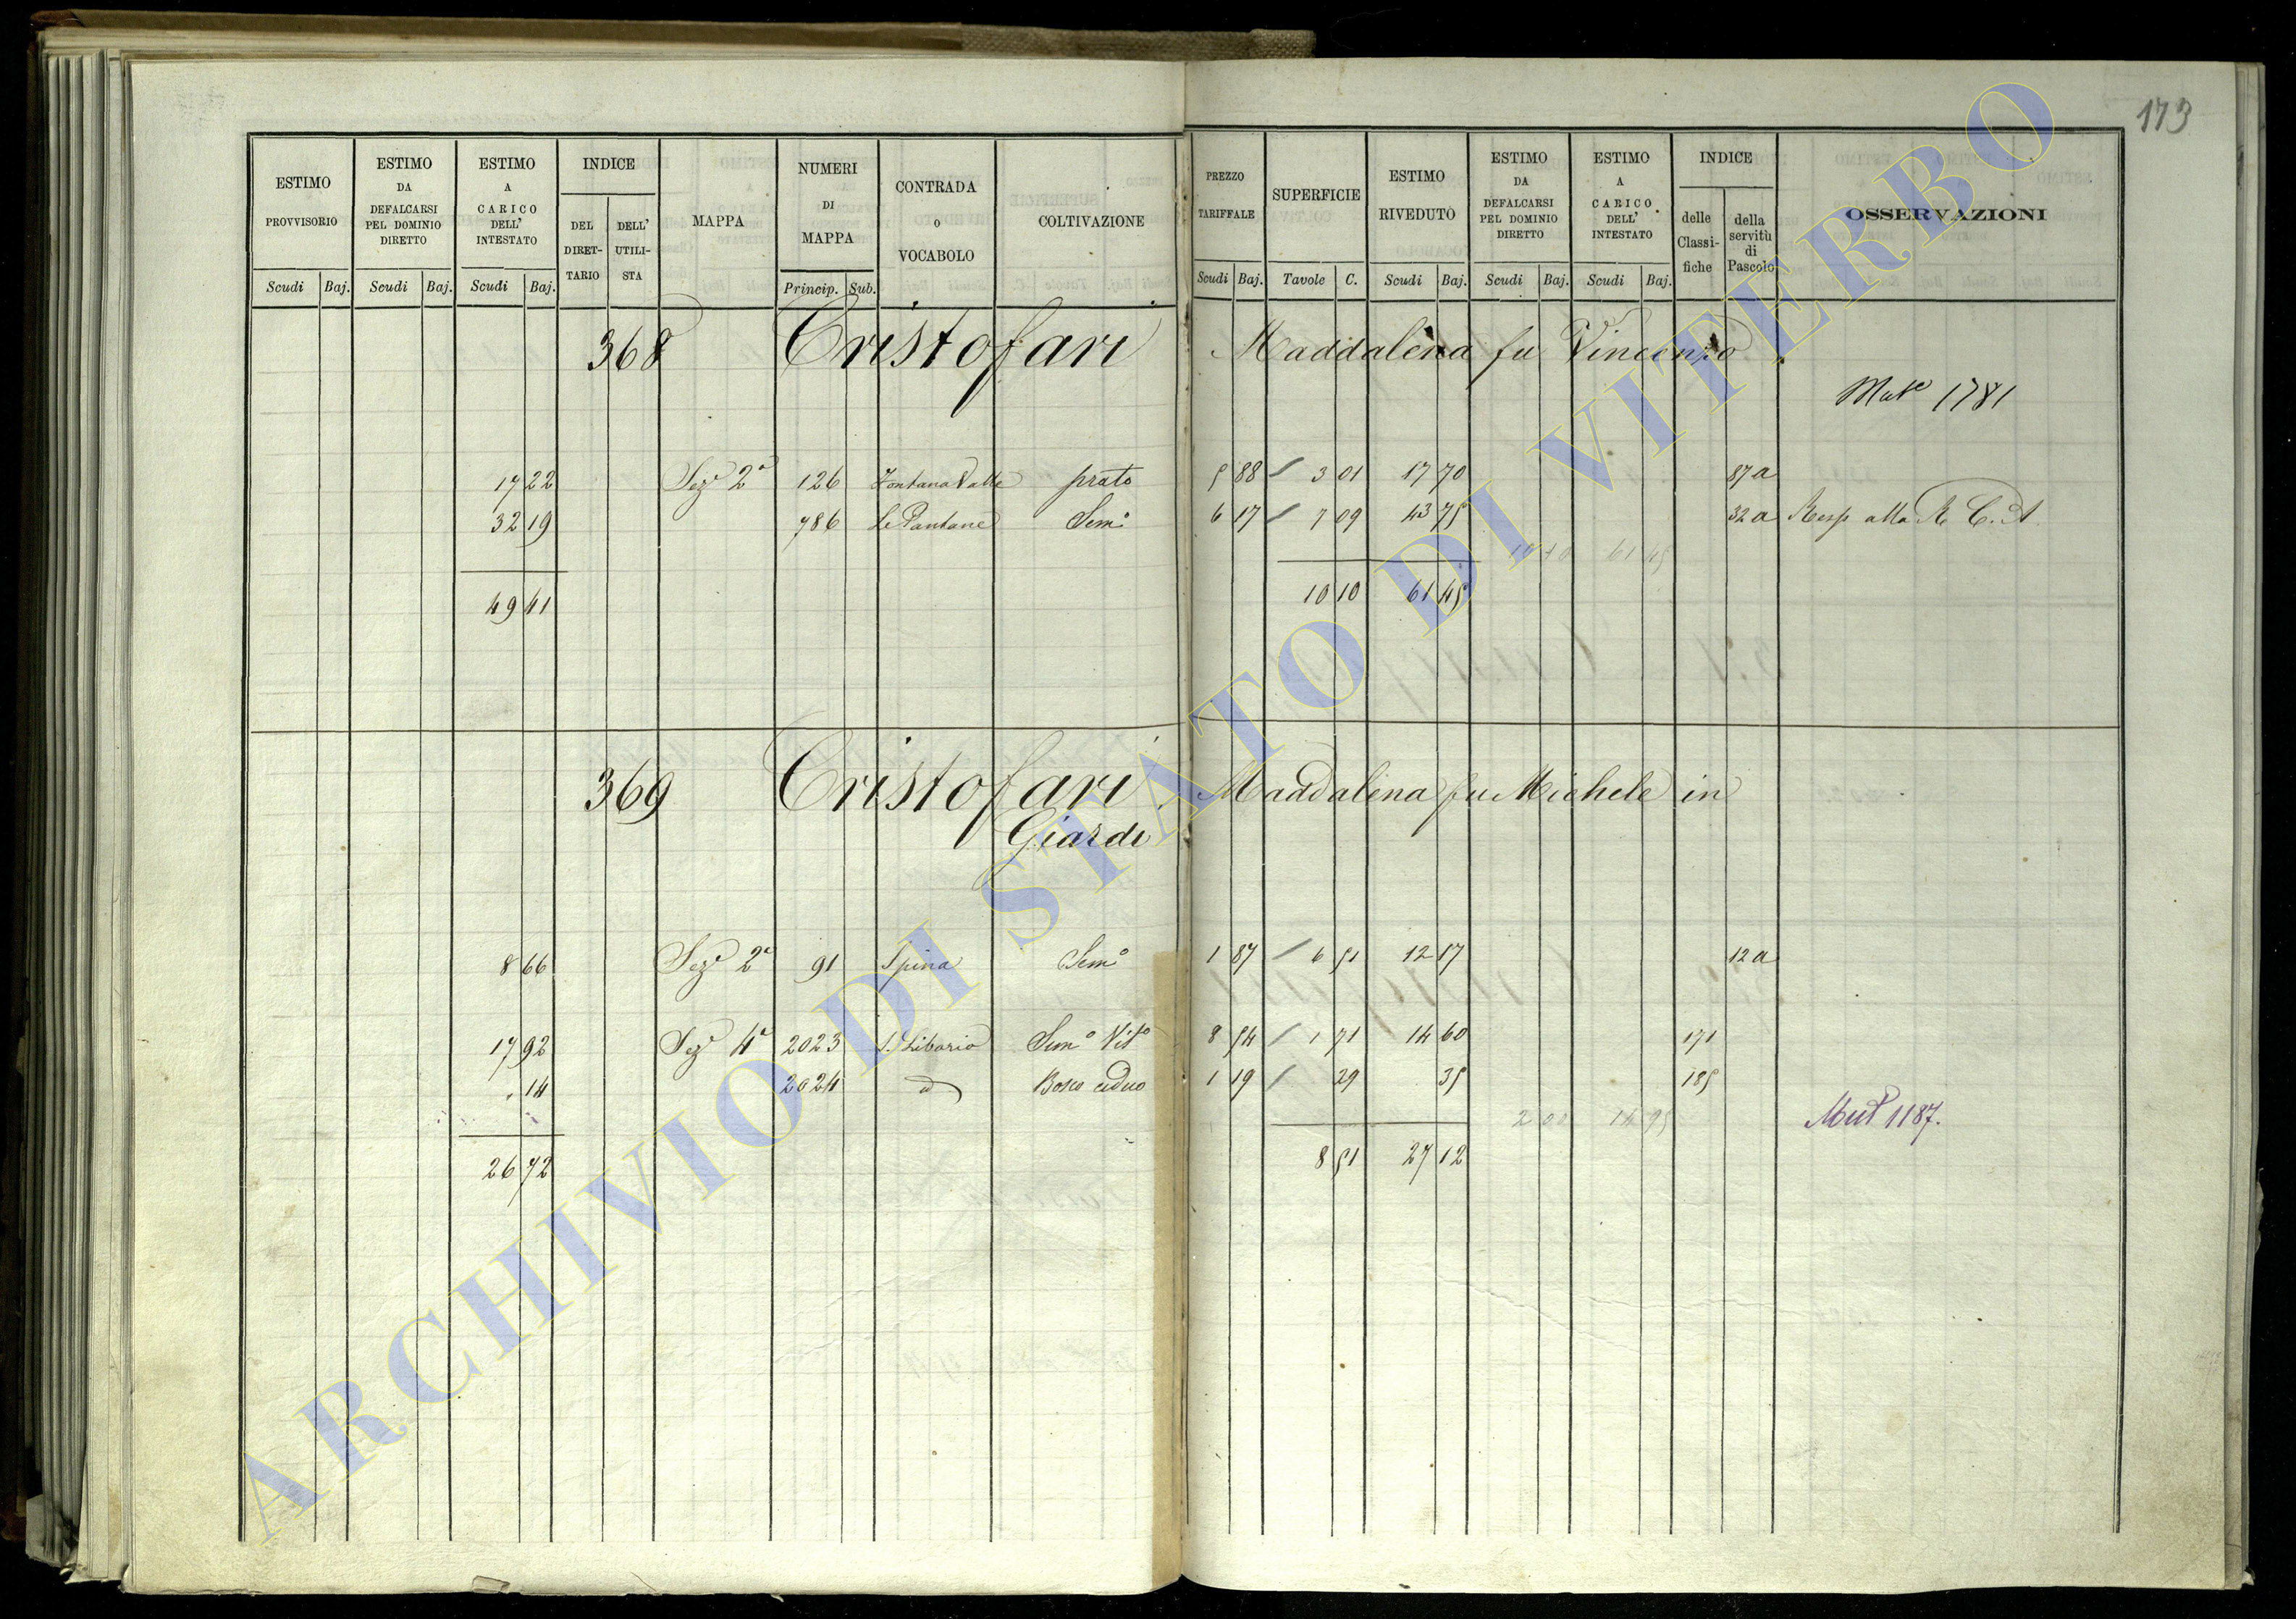 173
ESTIMO PROVVISORIO
ESTIMO DA DEFALCARSI PEL DOMINIO DIRETTO
ESTIMO A CARICO DELL' INTESTATO
INDICE
DEL DIRET-TARIO
DELL' UTILI-STA
MAPPA
NUMERI DI MAPPA
CONTRADA O VOCABOLO
COLTIVAZIONE
PREZZO TARIFFALE
SUPERFICIE
ESTIMO RIVEDUTO
ESTIMO DA DEFALCARSI PEL DOMINIO DIRETTO
ESTIMO A CARICO DELL' INTESTATO
INDICE
delle Classi-fiche
della servitù di Pascolo
OSSERVAZIONI
Scudi Baj. Scudi Baj. Scudi Baj. Princip. Sub. Scudi Baj. Tavole C. Scudi Baj. Scudi Baj. Scudi Baj.
368 Cristofari Maddalena fu Vincenzo
1781
17 22 Sezᵉ 2ᵃ 126 Fontana Valle prato 5 88 / 3 01 17 70 87 a
32 19 786 Le Pantane Semᵒ 6 17 / 7 09 43 75 32 a Resp alla R. C. A.
10 10 61 45
49 41 10 10 61 45
369 Cristofari Maddalena fu Michele in
Giardi
8 66 Sezᵉ 2ᵃ 91 Spina Semᵒ 1 87 / 6 51 12 17 12 a
17 92 Sezᵉ 4ᵃ 2023 S. Liborio Semᵒ Vitᵒ 8 54 / 1 71 14 60 171
" 14 2024 d Bosco ceduo 1 19 / 29 35 185
2 00 14 95 Mut 1187.
26 72 8 51 27 12
ARCHIVIO DI STATO DI VITERBO